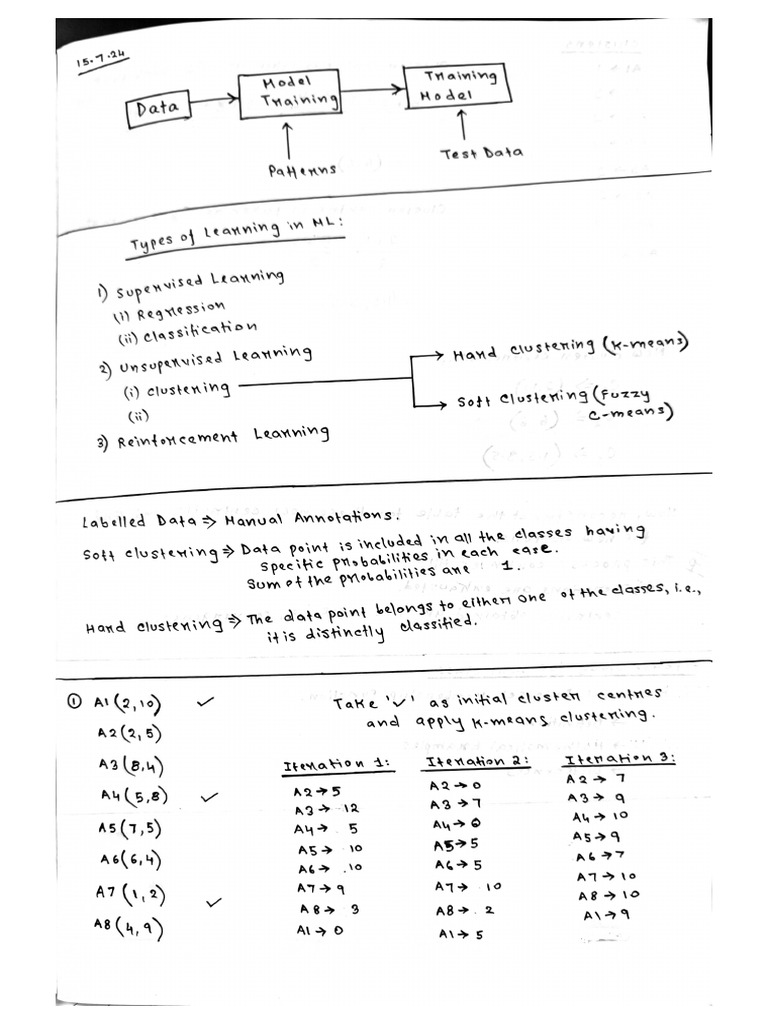 15.7.24
Data → Model Training → Training Model
Patterns
Test Data
Types of Learning in ML:
1) Supervised Learning
(i) Regression
(ii) Classification
2) Unsupervised Learning
(i) clustering
→ Hard clustering (K-means)
→ Soft clustering (Fuzzy
C-means)
(ii)
3) Reinforcement Learning
Labelled Data ⇒ Manual Annotations.
Soft clustering ⇒ Data point is included in all the classes having
specific probabilities in each case.
Sum of the probabilities are 1.
Hard clustering ⇒ The data point belongs to either one of the classes, i.e.,
it is distinctly classified.
① A1(2,10) ✓
A2(2,5)
A3(8,4)
A4(5,8) ✓
A5(7,5)
A6(6,4)
A7(1,2) ✓
A8(4,9)
Take '✓' as initial cluster centres
and apply K-means clustering.
Iteration 1:
A2→5
A3→12
A4→5
A5→10
A6→10
A7→9
A8→3
A1→0
Iteration 2:
A2→0
A3→7
A4→0
A5→5
A6→5
A7→10
A8→2
A1→5
Iteration 3:
A2→7
A3→9
A4→10
A5→9
A6→7
A7→10
A8→10
A1→9